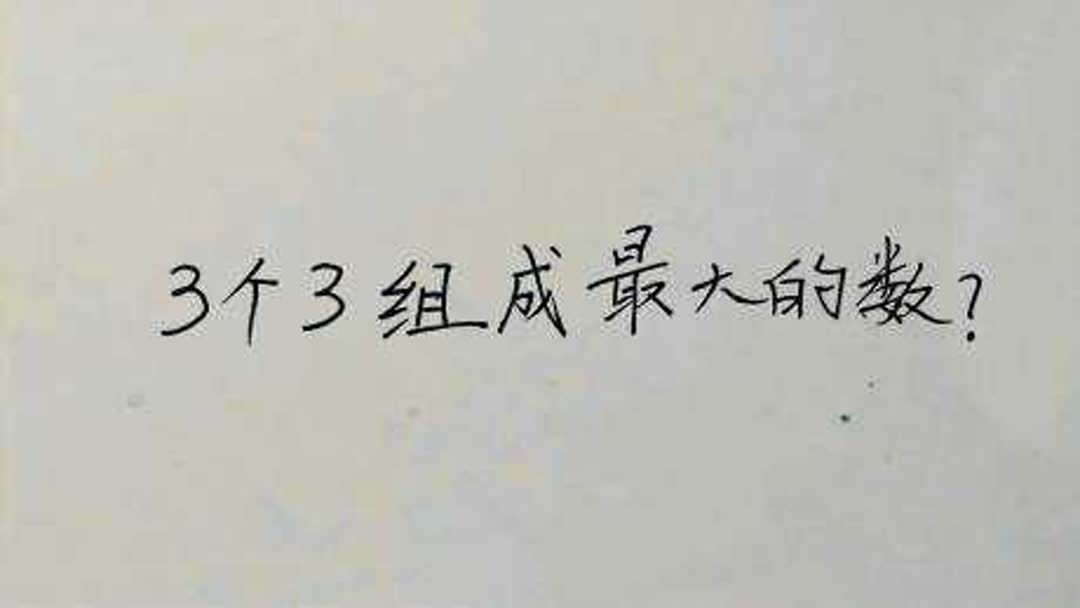 3个3组成最大的数?